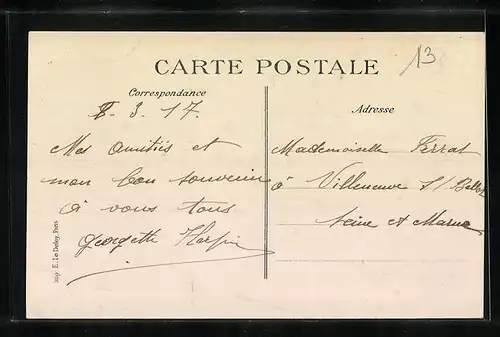 CARTE POSTALE
13
Correspondance
8-3-17.
Mes amitiés et
mon bon souvenir
à vous tous
Georgette
Adresse
Mademoiselle Ferrat
à Villeneuve S/ Bellot
Seine et Marne
Imp. E. Le Deley, Paris